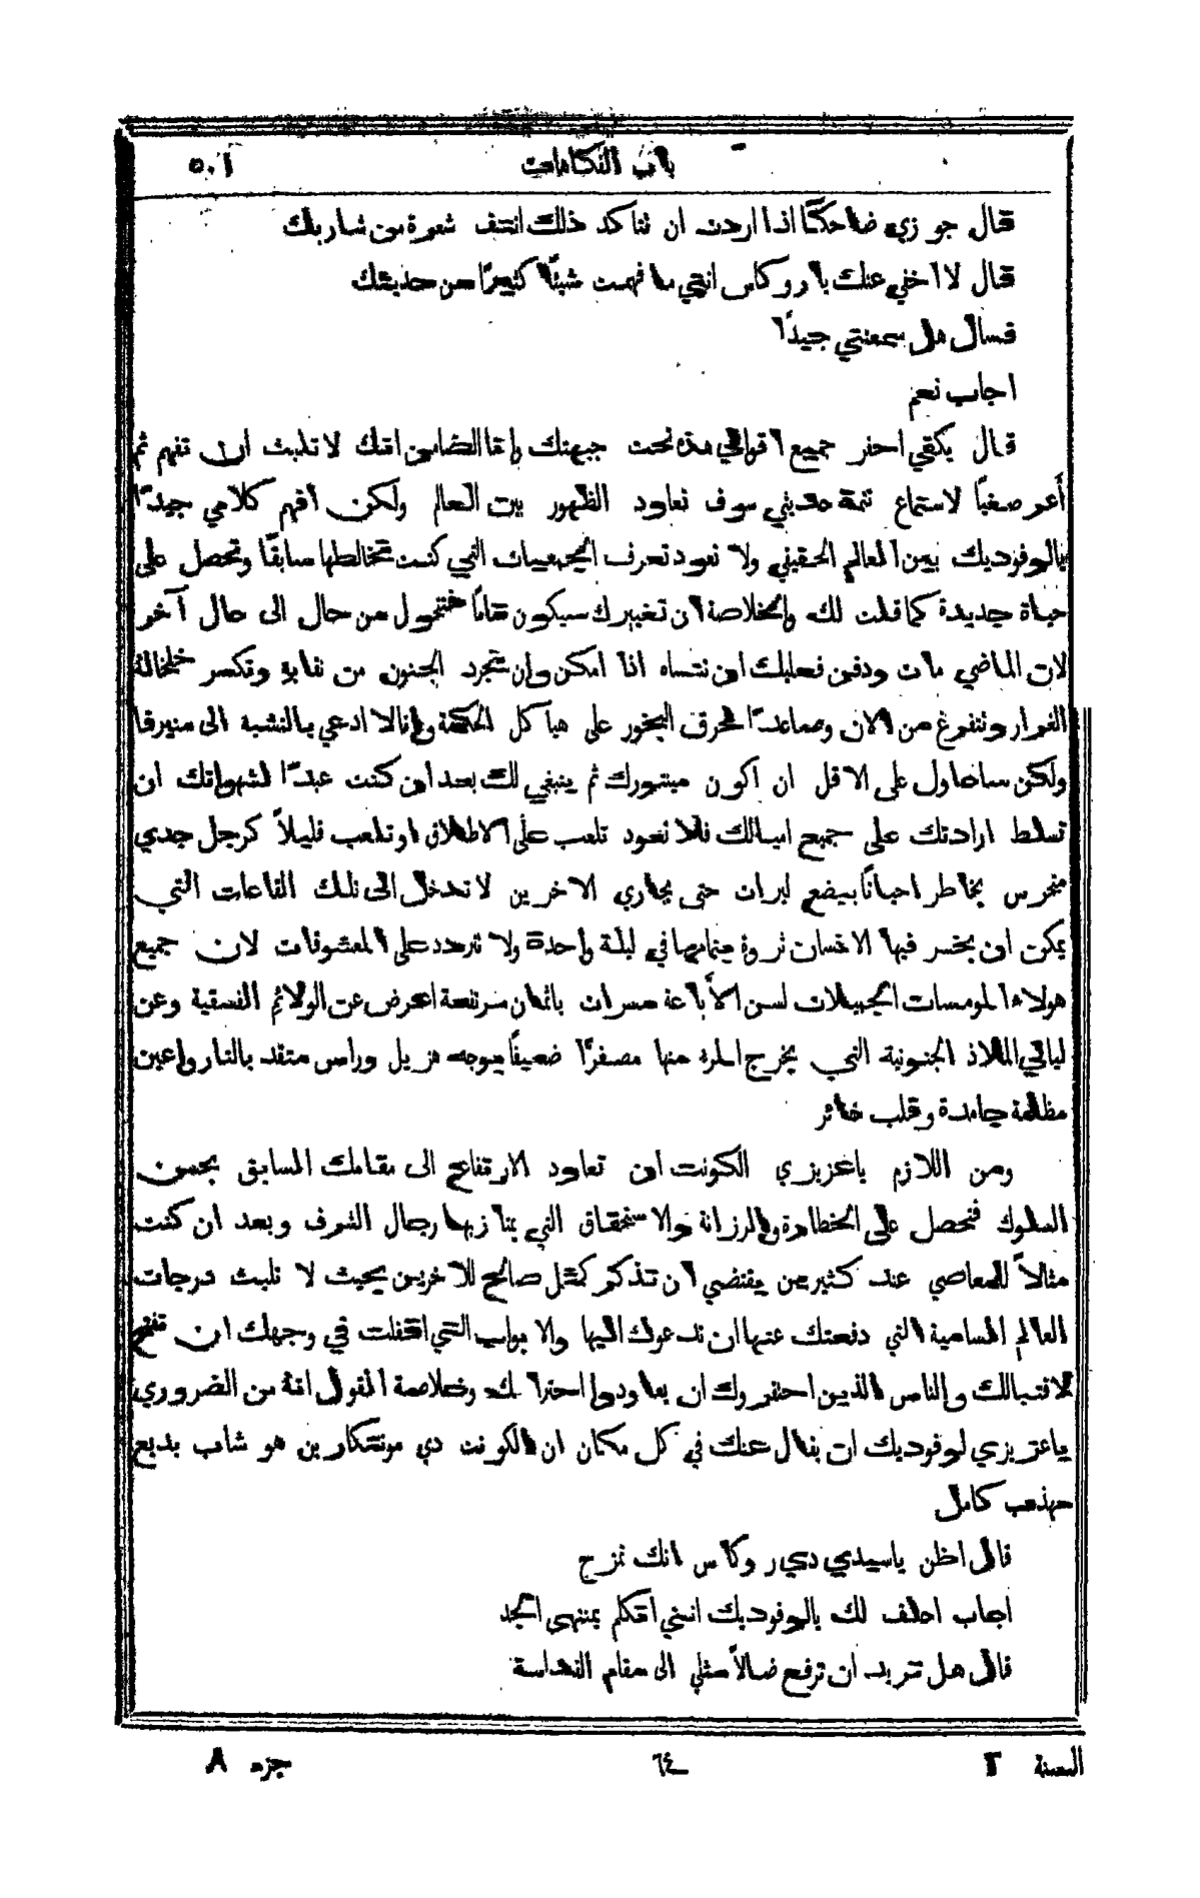 باب الفكاهات
٥٠١
قال جوزي ضاحكًا اذا اردت ان تتاكد ذلك انتف شعرة من شاربك
قال لا اخفي عنك يا روكاس انني ما فهمت شيئًا كثيرًا من حديثك
فسال هل سمعتني جيدًا
اجاب نعم
قال يكفي احفر جميع اقوالي هذه تحت جبهتك وانا الضامن انك لا تلبث ان تفهم ثم
أعر صغيًا لاستماع تتمة حديثي سوف تعاود الظهور بين العالم ولكن افهم كلامي جيدًا
يالوفوديك بين العالم الحقيقي ولا تعود تعرف الجمعيات التي كنت تخالطها سابقًا وتحصل على
حياة جديدة كما قلت لك والخلاصة ان تغييرك سيكون تمامًا فتتحول من حال الى حال آخر
لان الماضي مات ودفن فعليك ان تنساه اذا امكن وان تتجرد الجنون من نقابه وتكسر خلخاله
الفرار وتتفرغ من الان وصاعدًا لحرق البخور على هياكل الحكمة وانا لا ادعي بالنشبه الى منيرفا
ولكن ساحاول على الاقل ان اكون مبشورك ثم ينبغي لك بعد ان كنت عبدًا لشهواتك ان
تسلط ارادتك على جميع اميالك فلا تعود تلعب على الاطلاق او تلعب قليلاً كرجل جدي
متحرس يخاطر احيانًا ببضع ليرات حتى يجاري الاخرين لا تدخل الى تلك القاعات التي
يمكن ان يخسر فيها الانسان ثروة بتمامها في ليلة واحدة ولا تتردد على المعشوقات لان جميع
هولاء المومسات الجميلات لسن الا باعة مسرات باثمان مرتفعة اعرض عن الولائم الفسقية وعن
ليالي الملاذ الجنونية التي يخرج المرء منها مصفرًا ضعيفًا بوجه هزيل وراس متقد بالنار واعين
مظلمة جامدة وقلب خائر
ومن اللازم ياعزيزي الكونت ان تعاود الارتفاع الى مقامك السابق بحسن
السلوك فتحصل على الخطارة والرزانة والاستحقاق التي يمتاز بها رجال الشرف وبعد ان كنت
مثالاً للمعاصي عند كثيرين يقتضي ان تذكر كمثل صالح للاخرين بحيث لا تلبث درجات
العالم السامية التي دفعتك عنها ان تدعوك اليها والابواب التي اقفلت في وجهك ان تفتح
لاقتبالك والناس الذين احتقروك ان يعاودوا احترامك وخلاصة القول انه من الضروري
ياعزيزي لوفوديك ان يقال عنك في كل مكان ان الكونت دي مونتكارين هو شاب بديع
مهذب كامل
قال اظن ياسيدي دي روكاس انك تمزح
اجاب احلف لك يالوفوديك انني اتكلم بمنتهى الجد
قال هل تريد ان ترفع ضالاً مثلي الى مقام القداسة
السنة ٢
٦٤
جزء ٨